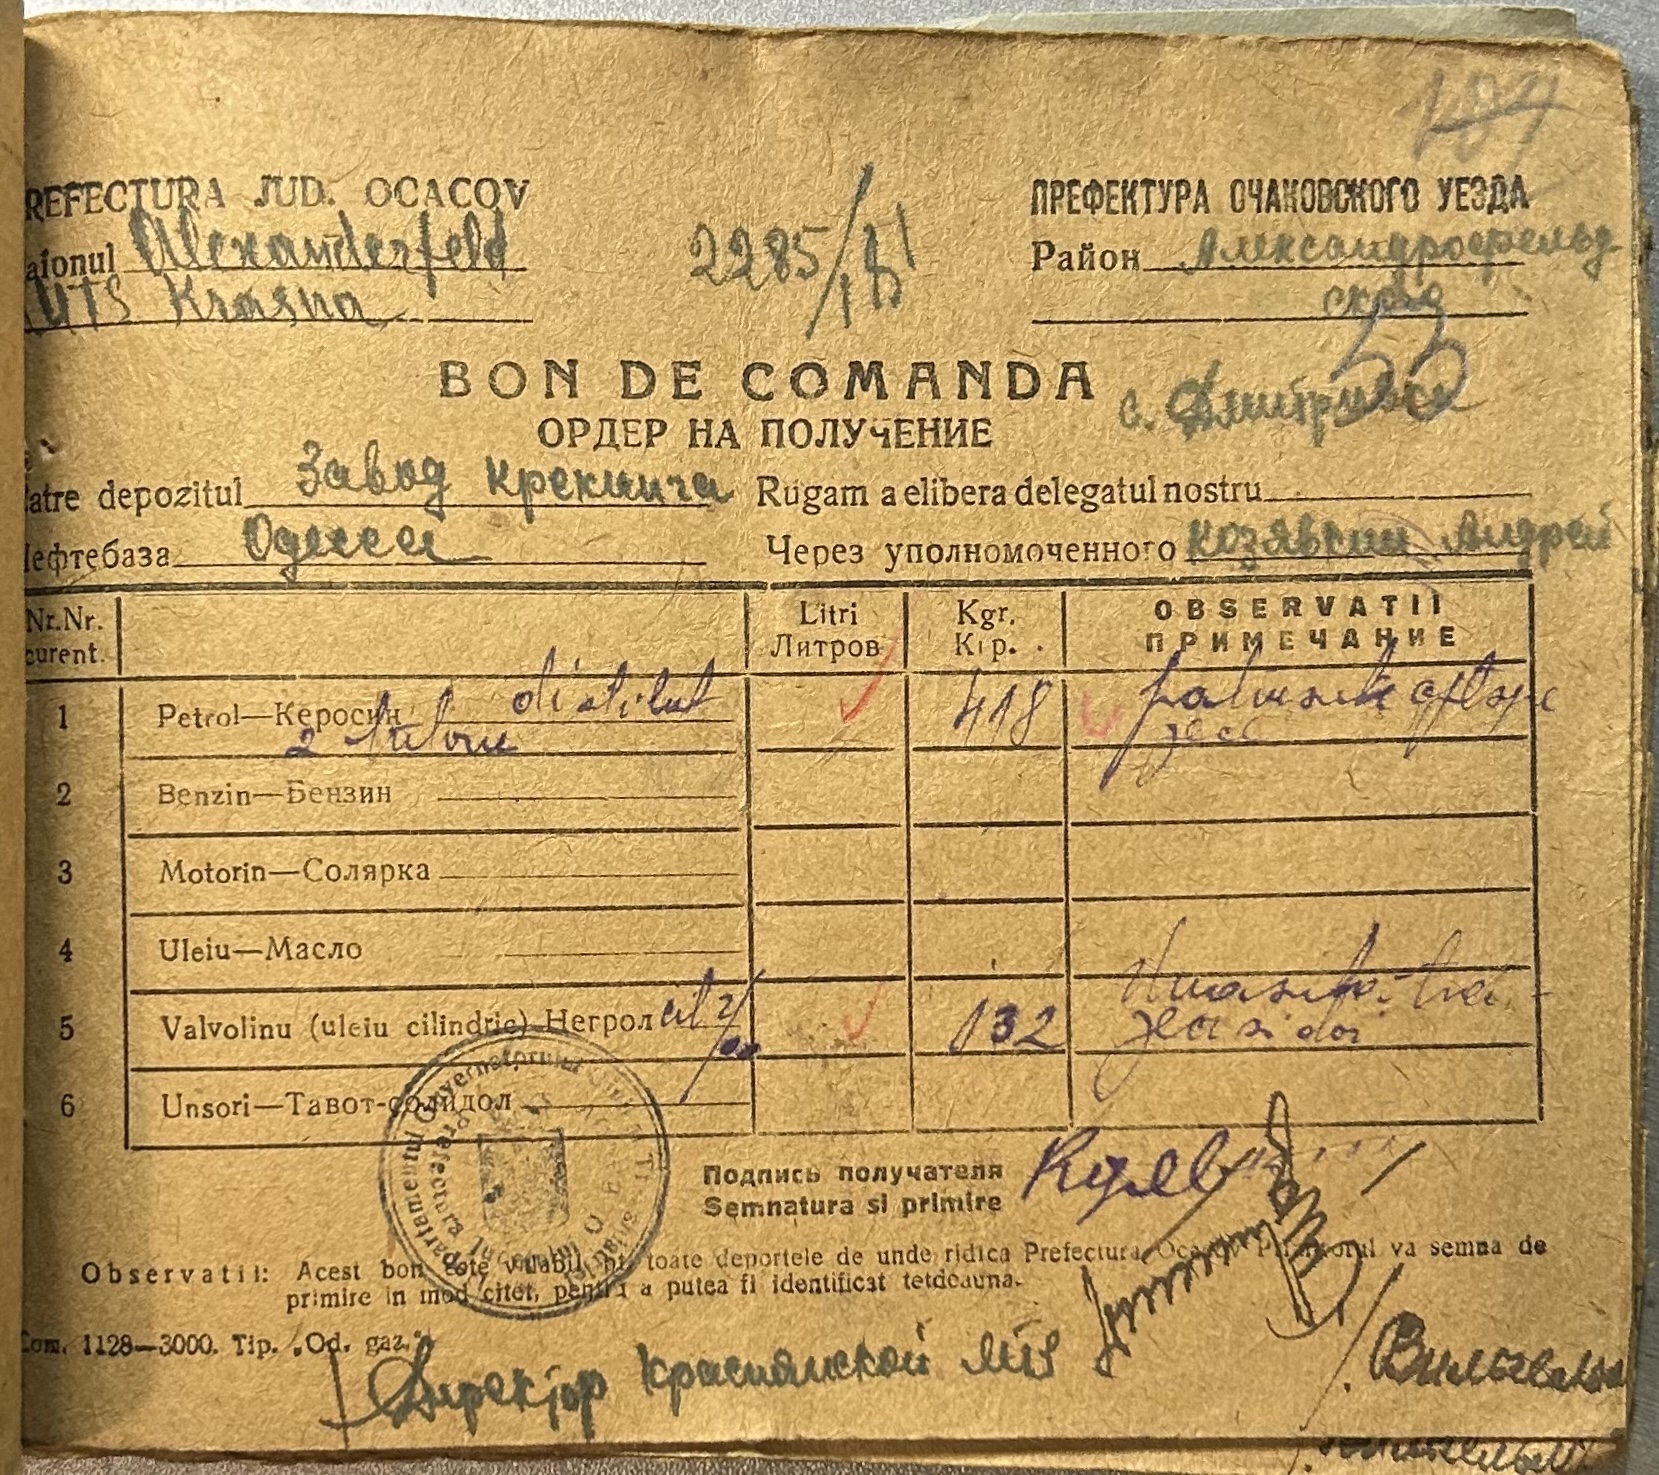 REFECTURA JUD. OCACOV
aionul Alexanderfeld
MTS Krasna
2285/
ПРЕФЕКТУРА ОЧАКОВСКОГО УЕЗДА
Район Александрофельд
ский
53
BON DE COMANDA
ОРДЕР НА ПОЛУЧЕНИЕ
с. Дмитриевск
atre depozitul Завод крекинга
Rugam a elibera delegatul nostru
ефтебаза Одесса
Через уполномоченного Козявкин Андрей
Nr.Nr. curent.
Litri Литров
Kgr. Кгр.
OBSERVATII ПРИМЕЧАНИЕ
1 Petrol—Керосин distilat 418
2
2 Benzin—Бензин
3 Motorin—Солярка
4 Uleiu—Масло
5 Valvolinu (uleiu cilindric) Негрол cil 132
zeci si doi
6 Unsori—Тавот-солидол
Подпись получателя
Semnatura si primire
Observatii: Acest bon este valabil pt. toate deportele de unde ridica Prefectura Ocacov Primitorul va semna de
primire in mod citet, pentru a putea fi identificat tetdeauna.
Com. 1128—3000. Tip. „Od. gaz."
Директор Краснянской МТS